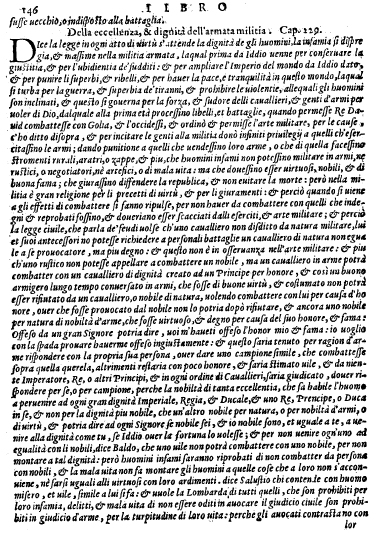 146 LIBRO
fusse uecchio, o indisposto alla battaglia.
Della eccellenza, & dignità dell'armata militia. Cap. 129.
Dice la legge in ogni atto di uirtù s'attende la dignità de gli huomini, la infamia si dispre
gia, & massime nella militia armata, laqual prima da Iddio uenne per conseruare la
giustitia, & per l'ubidientia de' sudditi: & per ampliare l'Imperio del mondo da Iddio dato,
& per punire li superbi, & ribelli, & per hauer la pace, e tranquilità in questo mondo, laqual
si turba per la guerra, & superbia de' tiranni, & prohibire le uiolentie, allequali gli huomini
son inclinati, & questo si gouerna per la forza, & sudore delli cauallieri, & genti d'armi per
uoler di Dio, dalquale alla prima età processino libelli, et battaglie, quando permesse Re Da-
uid combattesse con Golia, & l'occidesse, & ordinò & permisse l'arte militare, per le cause
c'ho ditto disopra, & per incitare le genti alla militia donò infiniti priuilegij a quelli ch'esser
citassino le armi; dando punitione a quelli che uendessino loro arme, o che di quella facessino
stromenti rurali, aratri, o zappe, & piu, che huomini infami non potessino militare in armi, ne
rustici, o negotiatori, nè artefici, o di mala uita: ma che douessino esser uirtuosi, nobili, & di
buona fama; che giurassino diffendere la republica, & non euitare la morte: però nella mi-
litia è gran religione per li precetti di uirtù, & per li giuramenti: & perciò quando si uiene
a gli effetti di combattere si fanno ripulse, per non hauer da combattere con quelli che inde-
gni & reprobati fossino, & doueriano esser scacciati dalli eserciti, & arte militare; & perciò
la legge ciuile, che parla de' feudi uole ch'uno caualliero non disfidato da natura militare, lui
et suoi antecessori no potesse richiedere a personali battaglie un caualliero di natura non egua
le a se prouocatore, ma piu degno: & questo non è in osseruanza nell'arte militare: & piu
ch'uno rustico non potesse appellare a combattere un nobile, ma un caualliero in arme potrà
combatter con un caualliero di dignità creato ad un Principe per honore, & così un buono
armigero lungo tempo conuersato in armi, che fosse di buone uirtù, & costumato non potrà
esser rifiutato da un caualliero, o nobile di natura, uolendo combattere con lui per causa d'ho
nore, ouer che fosse prouocato dal nobile non lo potria dopò rifiutare, & ancora uno nobile
per natura di nobiltà d'arme, che fosse uirtuoso, & degno per causa del suo honore, & fama:
Offeso da un gran Signore potria dire, uoi m'haueti offeso l'honor mio & fama: io uoglio
con la spada prouare hauerme offeso ingiustamente: & questo saria tenuto per ragion d'ar-
me rispondere con la propria sua persona, ouer dare uno campione simile, che combattesse
sopra quella querela, altrimenti restaria con poco honore, & saria stimato uile, & da nien-
te Imperatore, Re, o altri Principi, & in ogni ordine di Cauallieri, saria giudicato, douer ri-
spondere per se, o per campione, perche la nobiltà di tanta eccellentia, che fa habile l'huomo
a peruenire ad ogni gran dignità Imperiale, Regia, & Ducale, & uno Re, Prencipe, o Duca
in se, & non per la dignità piu nobile, che un'altro nobile per natura, o per nobiltà d'armi, o
di uirtù, & potria dire ad ogni Signore se nobile sei, & io nobile sono, et uguale a te, a ue-
nire alla dignità come tu, se Iddio ouer la fortuna lo uolesse; & per non uenire ogn'uno ad
egualità con li nobili, dice Baldo, che uno uile non potrà combattere con uno nobile, per non
montare a tal dignità: però huomini infami saranno riprobati di non combatter da persona
con nobili, & la mala uita non fa montare gli huomini a quelle cose che a loro non s'acco-
uiene, nè farsi uguali alli uirtuosi con loro ardimenti. dice Salustio chi conten. le con huomo
misero, et uile, simile a lui si fa: & uuole la Lombarda di tutti quelli, che son prohibiti per
loro infamia, delitti, & mala uita di non essere oditi in auocare il giudicio ciuile son prohi-
biti in giudicio d'arme, per la turpitudine di loro uita: perche gli auocati contrasta no con
lor